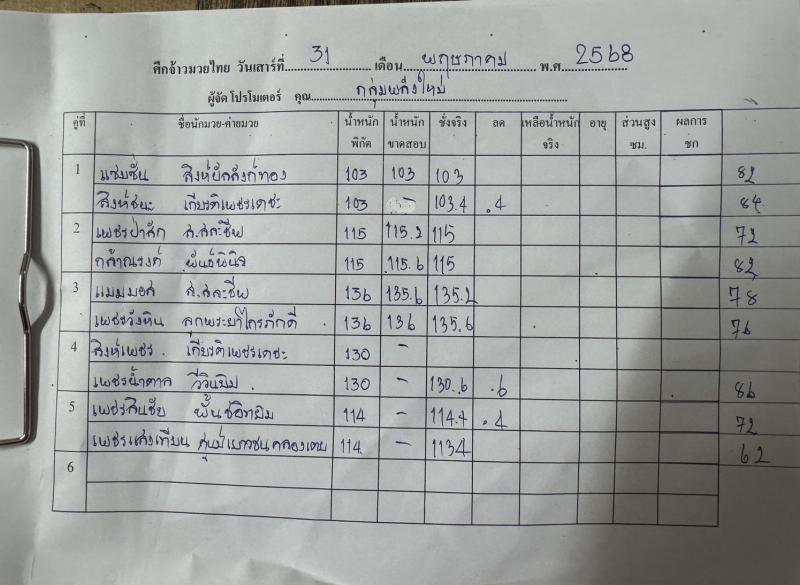 ศึกจ้าวมวยไทย วันเสาร์ที่ 31 เดือน พฤษภาคม พ.ศ 2568
ผู้จัด โปรโมเตอร์ คุณ กลุ่มพลังใหม่
คู่ที่ ชื่อนักมวย-ค่ายมวย น้ำหนักพิกัด น้ำหนักขาดสอบ ชั่งจริง ลด เหลือน้ำหนักจริง อายุ ส่วนสูง ซม. ผลการชก
1 แชมชั่น 103 103 103 82
สิงห์ชนะ เกียรติเพชรเดชะ 103 - 103.4 .4 84
2 เพชรป่าสัก ส.สละชีพ 115 115.2 115 72
กล้าณรงค์ พันธ์พินิจ 115 115.6 115 82
3 แมมมอส ส.สละชีพ 136 135.6 135.2 78
เพชรวังหิน ลูกพระยาไกรภักดี 136 136 135.6 76
4 สิงห์เพชร เกียรติเพชรเดชะ 130 -
เพชรน้ำตาล วีวินยิม 130 - 130.6 .6 86
5 เพชรสินชัย 114 - 114.4 .4 72
เพชรแสงเทียน ศูนย์เยาวชนคลองเตย 114 - 62
6